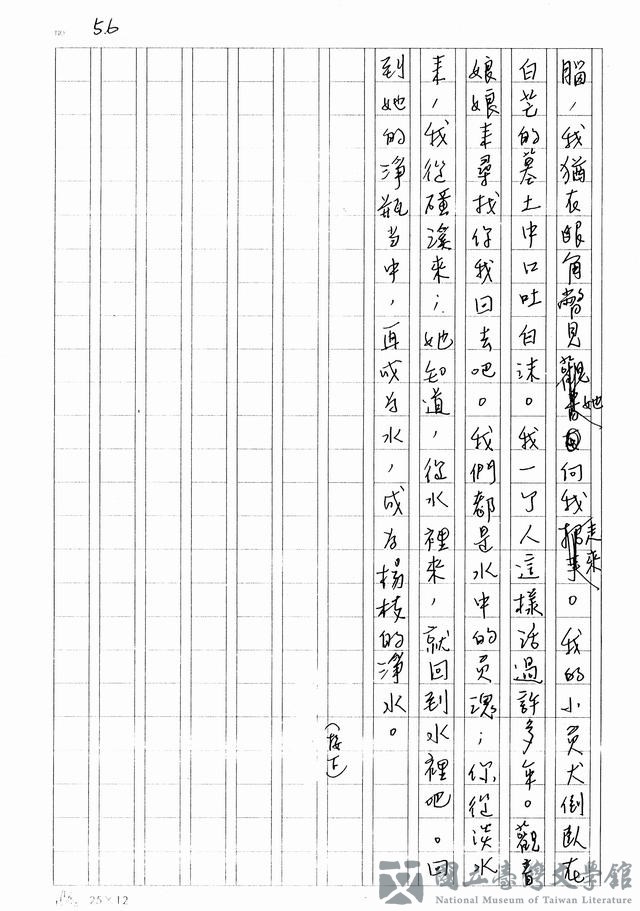 56
腦，我猶在眼角瞥見她向我走來。我的小員犬倒臥在
白芒的墓土中口吐白沫。我一个人這樣活過許多年。觀音
娘娘來尋找你我回去吧。我們都是水中的員魂；你從淡水
來，我從磺溪來；她知道，從水裡來，就回到水裡吧。回
到她的淨瓶当中，再成为水，成为楊枝的淨水。
（接下）
25×12
國立臺灣文學館
National Museum of Taiwan Literature